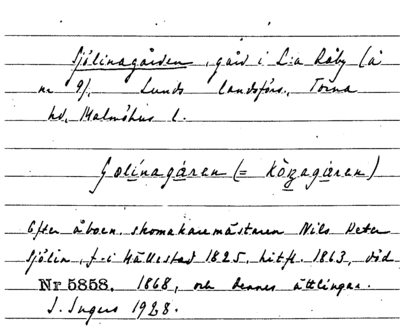 Sjölinagården, gård i L:a Råby (å
nr 9), Lunds landsförs., Torna
hd, Malmöhus l.
Golínagáren (= Kòzagáren)
Efter åboen skomakaremästaren Nils Peter
Sjölin, f. i Hällestad 1825, hitfl. 1863, död
Nr 5858. 1868, och dennes ättlingar.
I. Ingers 1928.